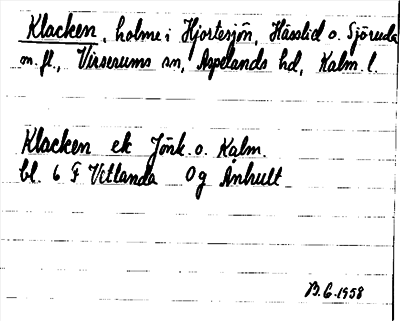 Klacken, holme i Hjortesjön, Hässlid o. Sjöreda
m. fl., Virserums sn, Aspelands hd, Kalm. l.
Klacken ek Jönk. o. Kalm.
bl. 6 F Vetlanda Og Änhult
B.G. 1958